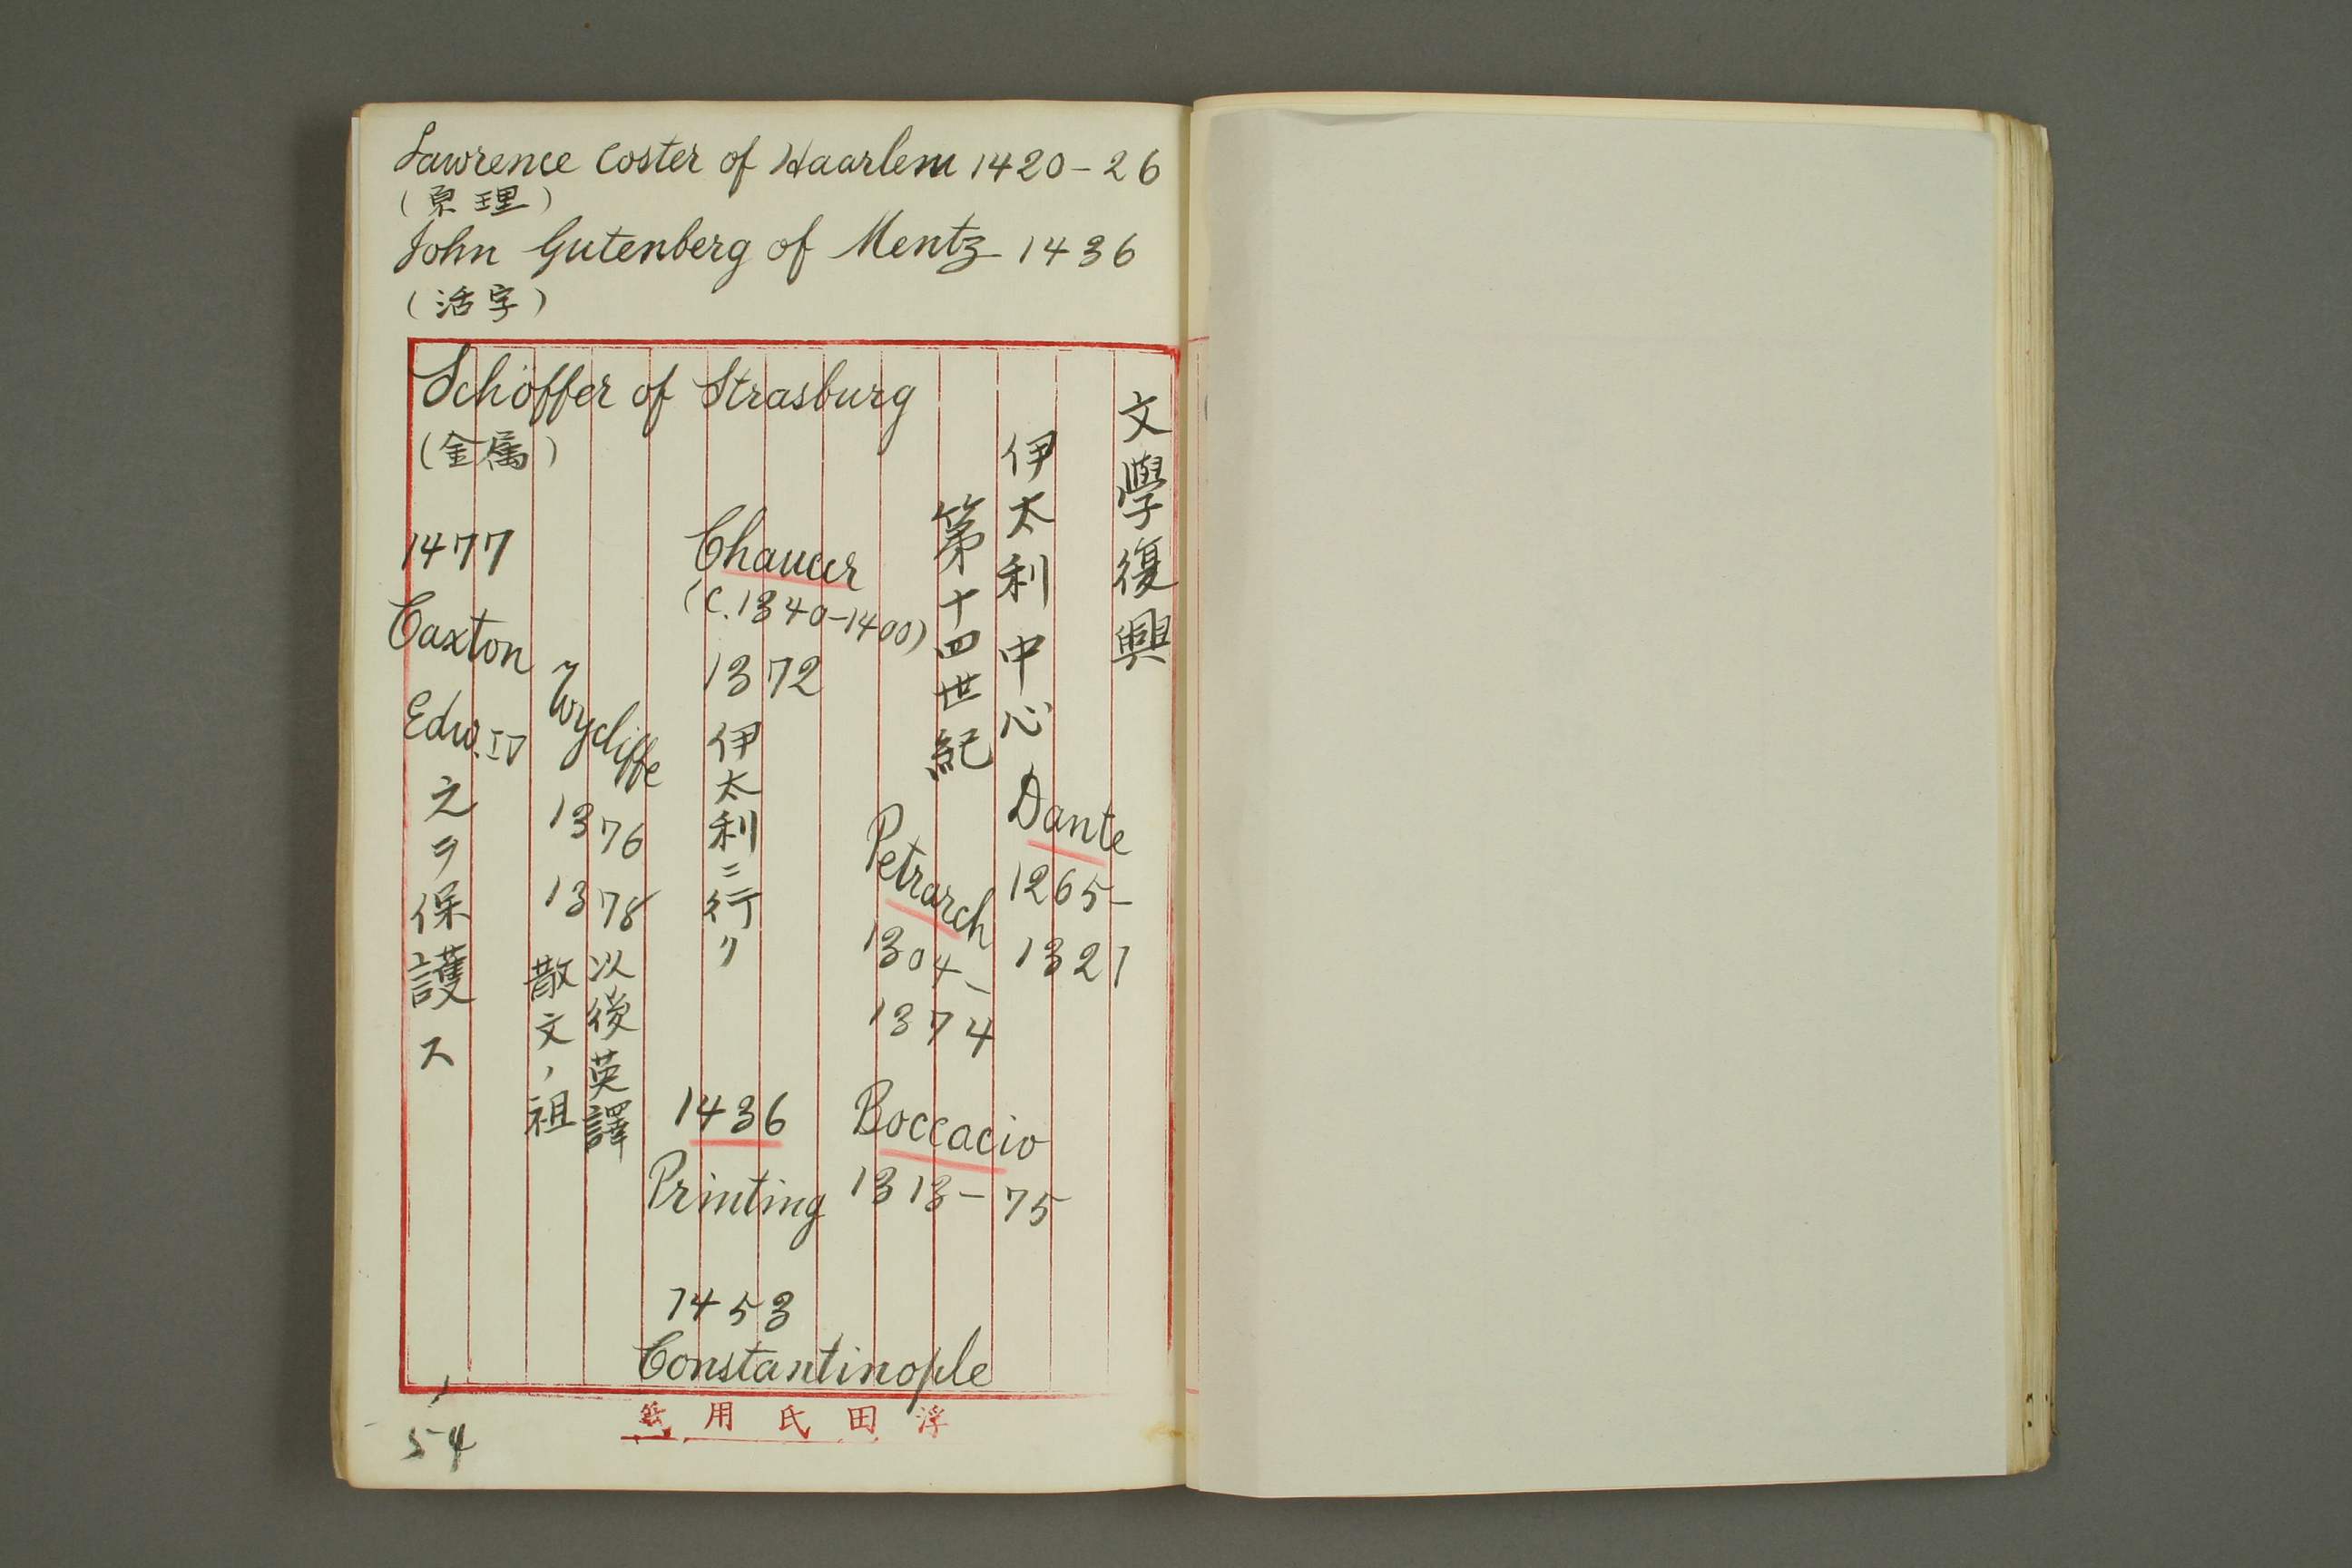 Lawrence Coster of Haarlem 1420-26
(原理)
John Gutenberg of Mentz 1436
(活字)
Schöffer of Strasburg
(金属)
文學復興
伊太利中心
Dante
1265-
1321
第十四世紀
Petrarch
1304-
1374
Boccacio
1313-75
Chaucer
(c.1340-1400)
1372
伊太利ニ行ク
1436
Printing
1453
Constantinople
Wycliffe
1376
1378
以後英譯
散文ノ祖
1477
Caxton
Edw. IV
之ヲ保護ス
54
浮田氏用箋